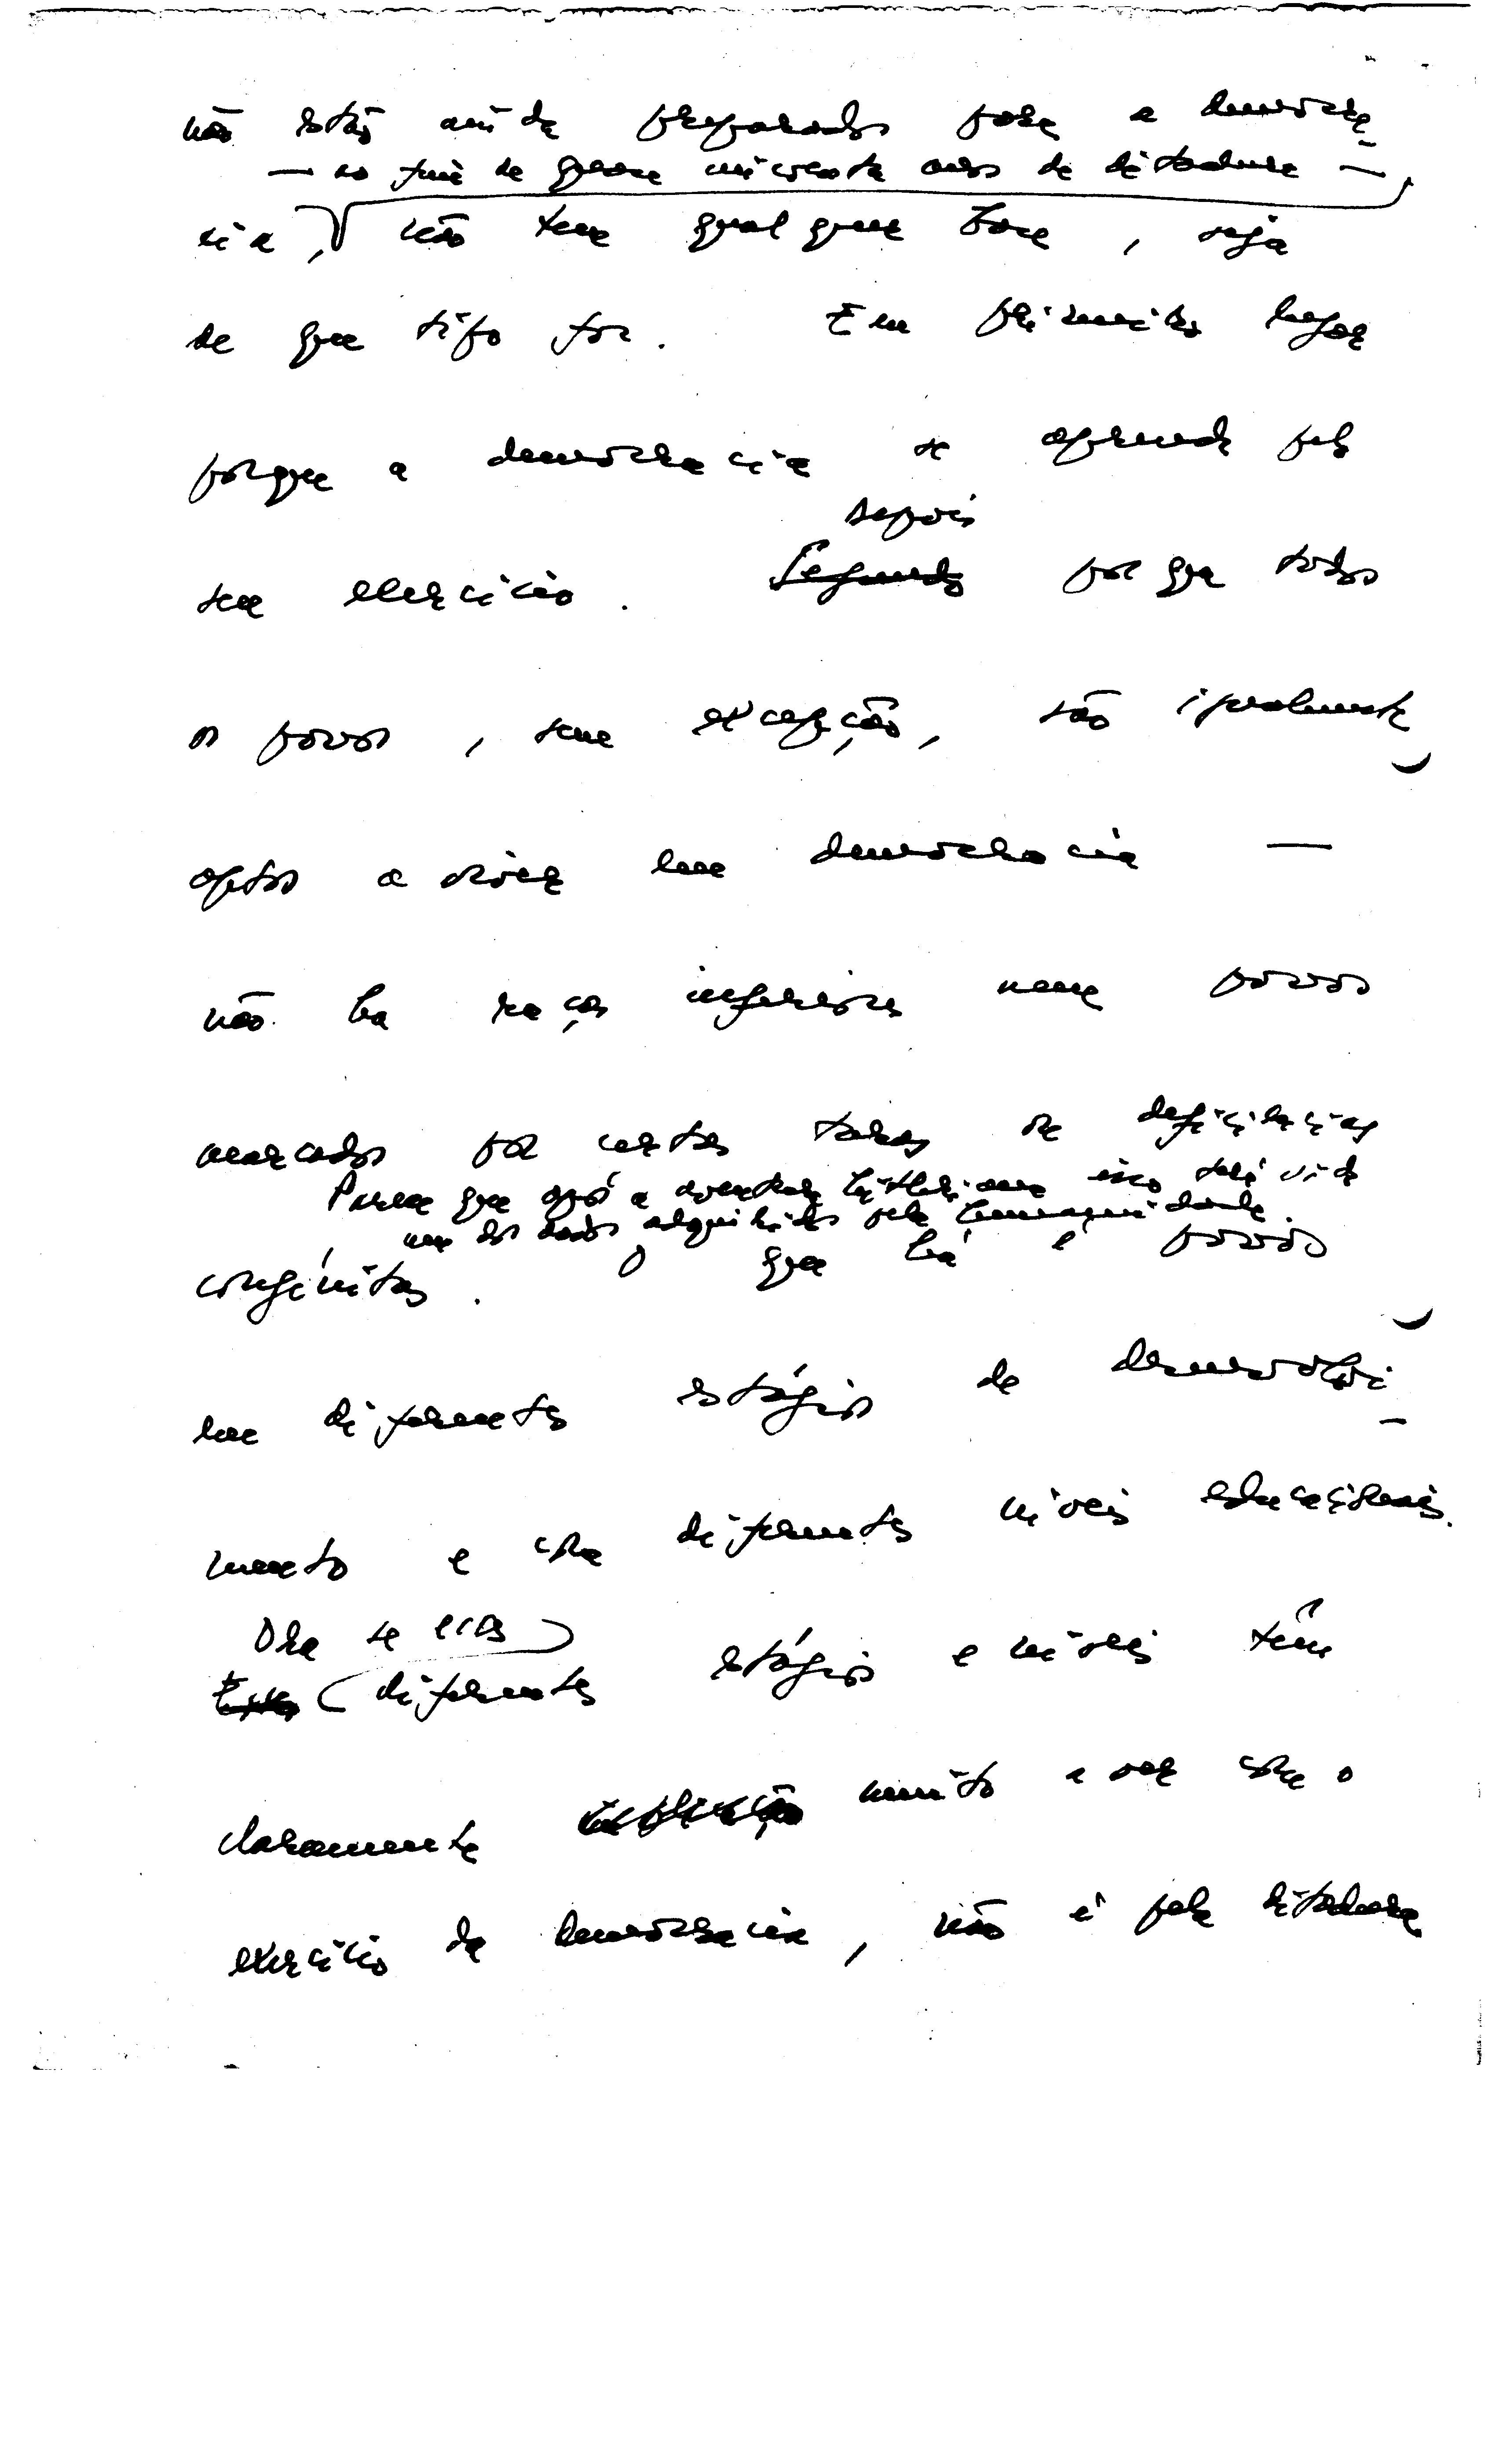 não estão ainda preparados para a democra-
— ao fim de quase cinquenta anos de ditadura —
cia, não tem qualquer base, seja
de que tipo for. Em primeiro lugar
porque a democracia se aprende pelo
depois
seu exercício. Segundo porque todos
os povos, sem excepção, são igualmente
aptos a viver em democracia —
não há raças inferiores nem povos
marcados por certas taras ou deficiências
Parece que após a aventura hitleriana isso terá sido
um dos dados adquiridos pela humanidade.
congénitas. O que há é povos
em diferentes estágios de desenvolvi-
mento e com diferentes níveis educacionais.
Ora se esses
Esses diferentes estágios e níveis têm
claramente muito a ver com o
exercício da democracia, não é pela ditadura